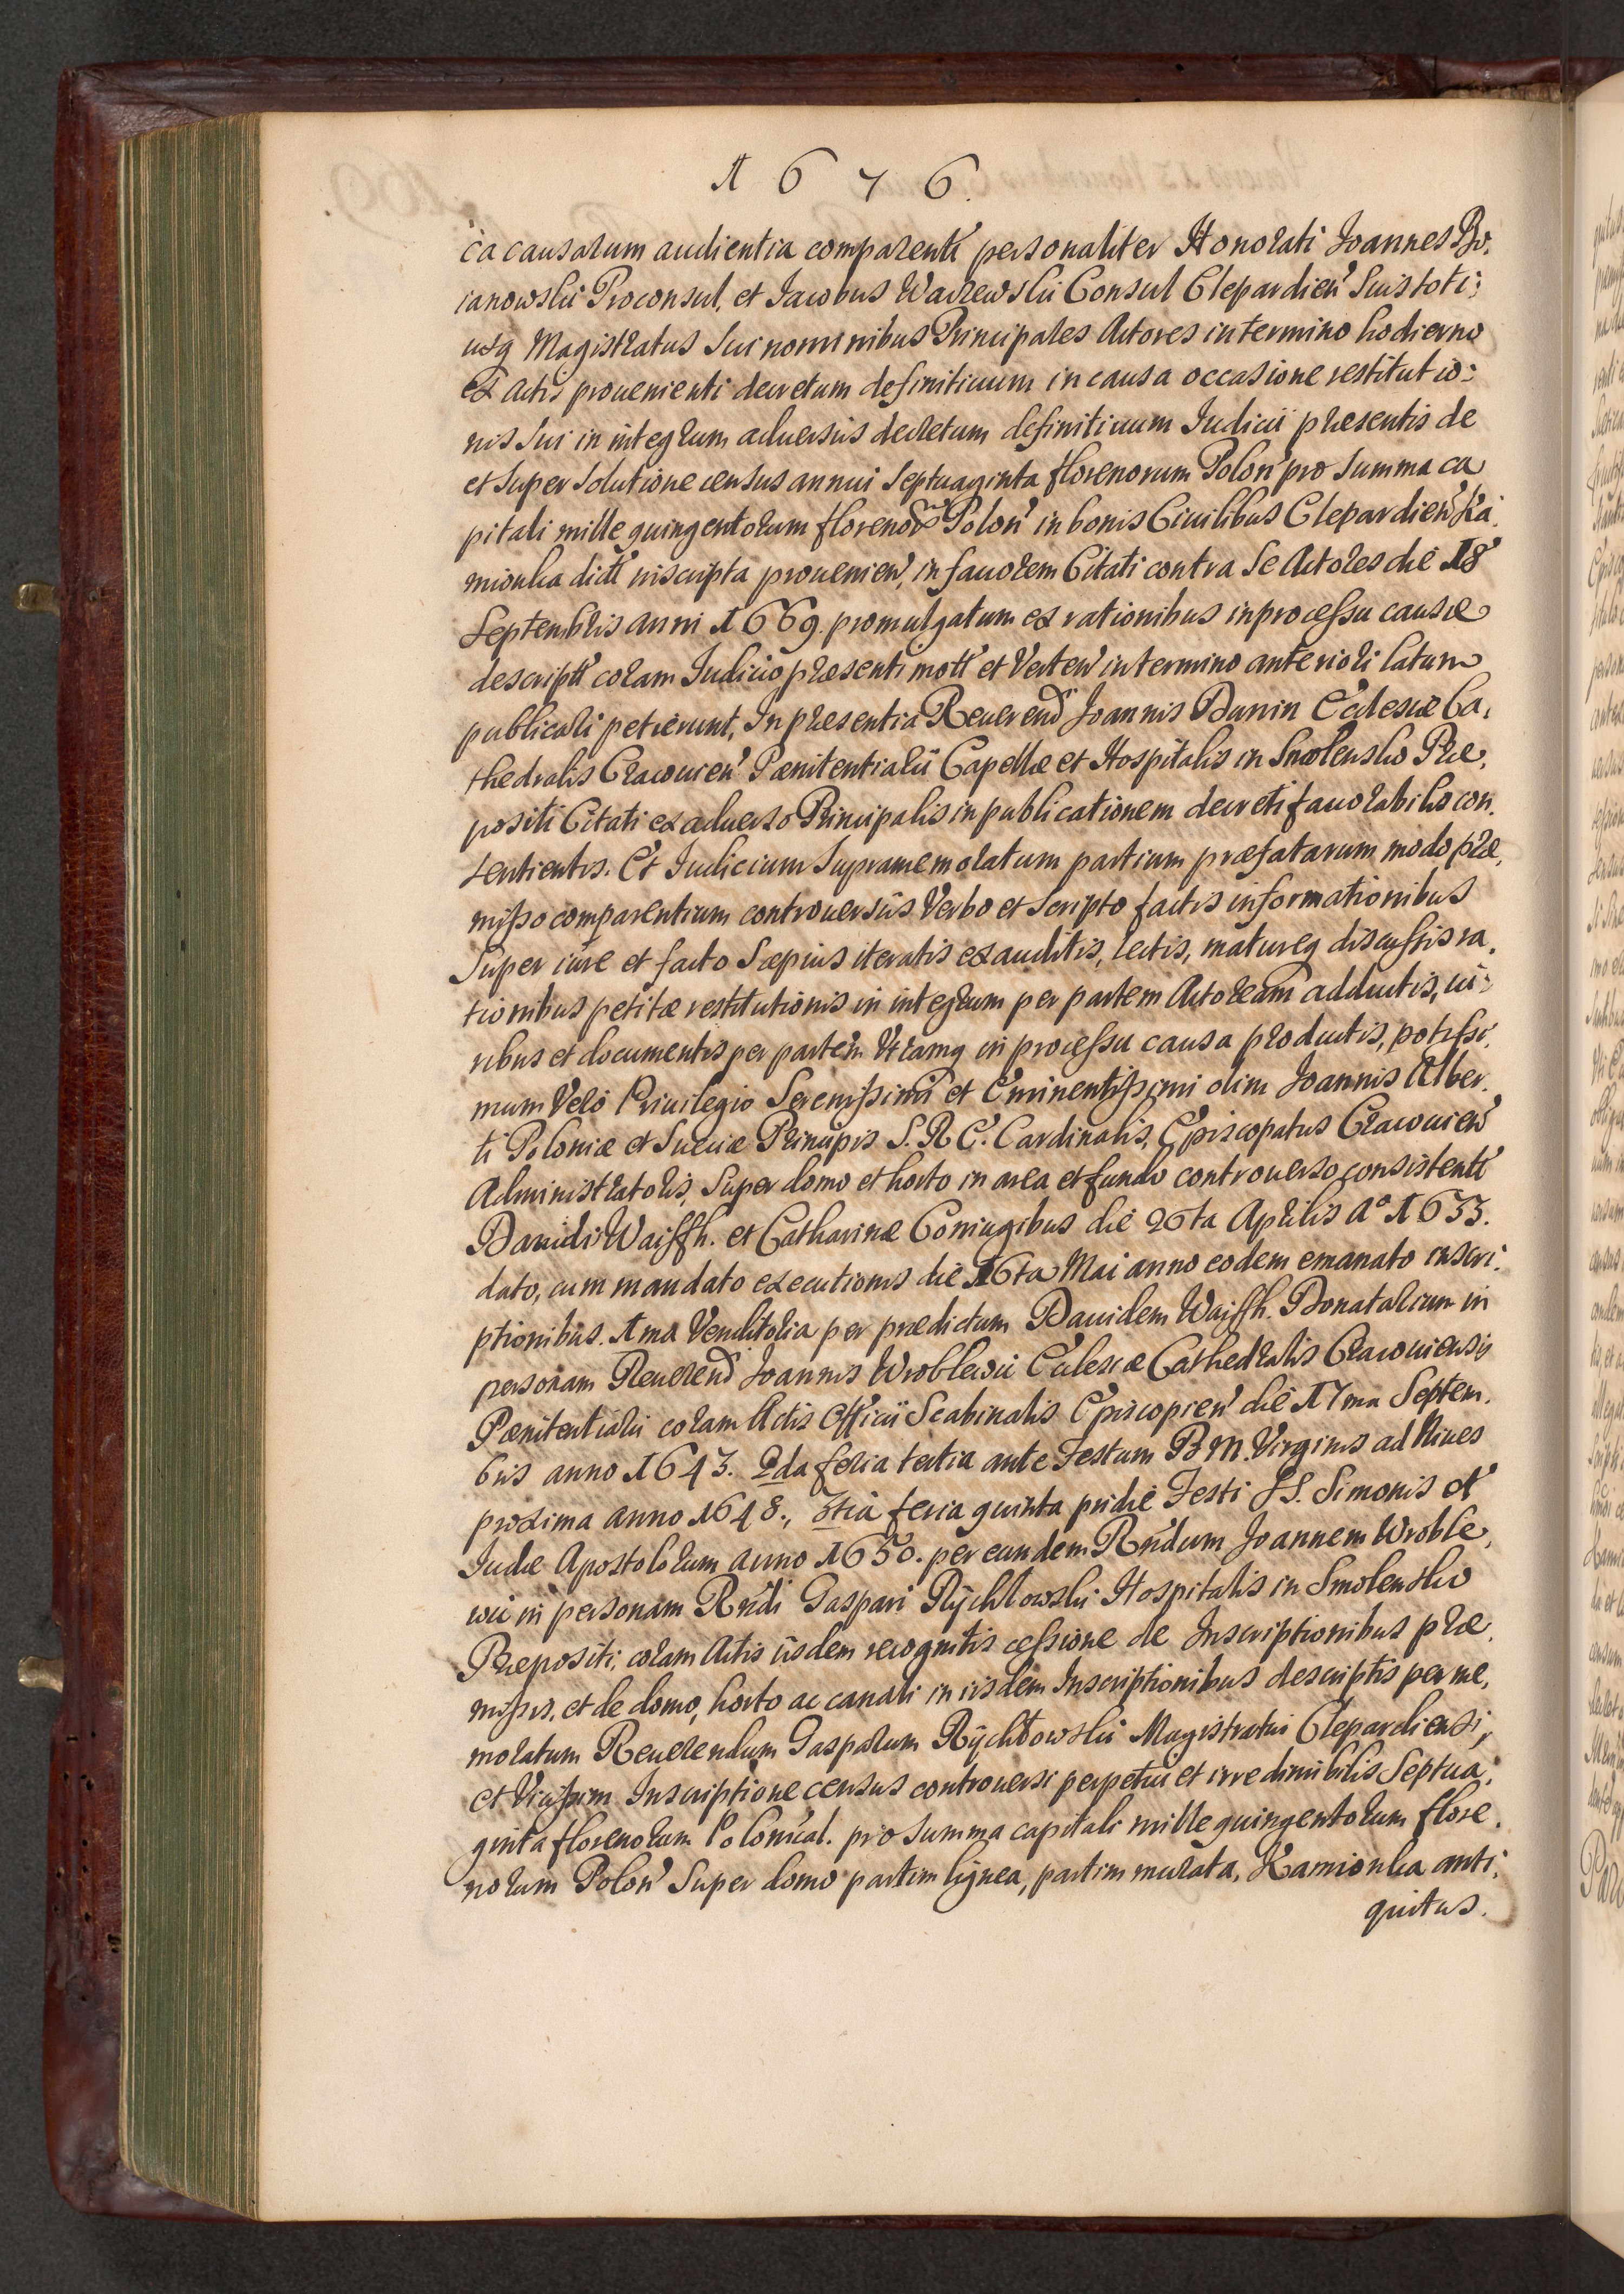 1676.
ca causarum audientia comparenti personaliter Honorati Joannes Bo,
ianowskii Proconsul, et Iacobus Warzewskii Consul Clepardien̄ Suis toti:
usq Magistratus sui nominibus Principales Actores in termino hodierno
ex Actis prouenienti decretum definitiuum in causa occasione restitutio:
nis sui in integrum aduersus decretum definitiuum Iudicii præsentis de
et super solutione census annui Septuaginta florenorum Polon̄ pro Summa ca
pitali mille quingentorum floreno℞ Polon̄ in bonis Ciuilibus Clepardien̄ Ka,
mionka dictt̄ inscripta prouenien̄, in fauorem Citati contra Se Actores die 18
Septembris anni 1669. promulgatum ex rationibus in processu causæ
descriptt̄ coram Iudicio præsenti mott̄ et Verten̄ in termino anteriori latum
publicari petierunt, In præsentia Reuerend̄ Joannis Dunin Ecclesiæ Ca,
thedralis Cracouien̄ Pœnitentiarii Capellæ et Hospitalis in Smolensko Præ,
positi Citati ex aduerso Principalis in publicationem decreti fauorabilis con,
sentientis. Et Iudicium Supramemoratum partium præfatarum modo præ,
misso comparentium controuersiis Verbo et scripto factis informationibus
Super iure et facto Sæpius iteratis exauditis, lectis, matureq discussis ra,
tionibus petitæ restitutionis in integrum per partem Actoream adductis, iu:
ribus et documentis per partem Vtramq in processu causa productis, potissi,
mum Vero Priuilegio Serenissimi et Eminentissimi olim Joannis Alber,
ti Poloniæ et Sueciæ Principis S. R E. Cardinalis, Episcopatus Cracouien̄
Administratoris, Super domo et horto in area et fundo controuerso consistentt̄
Dauidi Waiffh. et Catharinæ Coniugibus die 26ta Aprilis A° 1633.
dato, cum mandato executionis die 16ta Mai anno eodem emanato inscri,
ptionibus. 1ma Venditoria per prædictum Dauidem Waiffh. Donatarium in
personam Reuerend̄ Joannis Wroblewii Ecclesiæ Cathedralis Cracouiensis
Pœnitentiarii coram Actis Officii Scabinalis Episcopien̄ die 17ma Septem,
bris anno 1643. 2da feria tertia ante Festum B M. Virginis ad Niues
proxima anno 1648., 3tia feria quinta pridie Festi SS. Simonis et
Iudæ Apostolorum anno 1650. per eundem Rndum Joannem Wroble,
wii in personam Rndi Gaspari Rÿchłowskii Hospitalis in Smolensko
Præpositi, coram Actis iisdem recognitis cessione de Inscriptionibus præ,
missis, et de domo, horto ac canali in iisdem Inscriptionibus descriptis per me,
moratum Reuerendum Gasparum Rÿchłowskii Magistratui Clepardiensi,
et Vicissim Inscriptione census controuersi perpetui et irredimibilis Septua,
ginta florenorum Polonical. pro summa capitali mille quingentorum flore,
norum Polon̄ Super domo partim lignea, partim murata, Kamionka anti,
quitus.